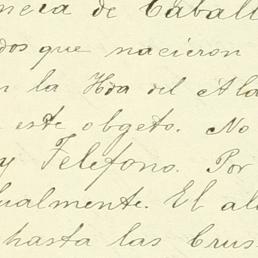 nera de Caball
dos que nacieron
n la Hda del Ala
este obgeto. No
y Teléfono. Por
ualmente. El al
hasta las Crus